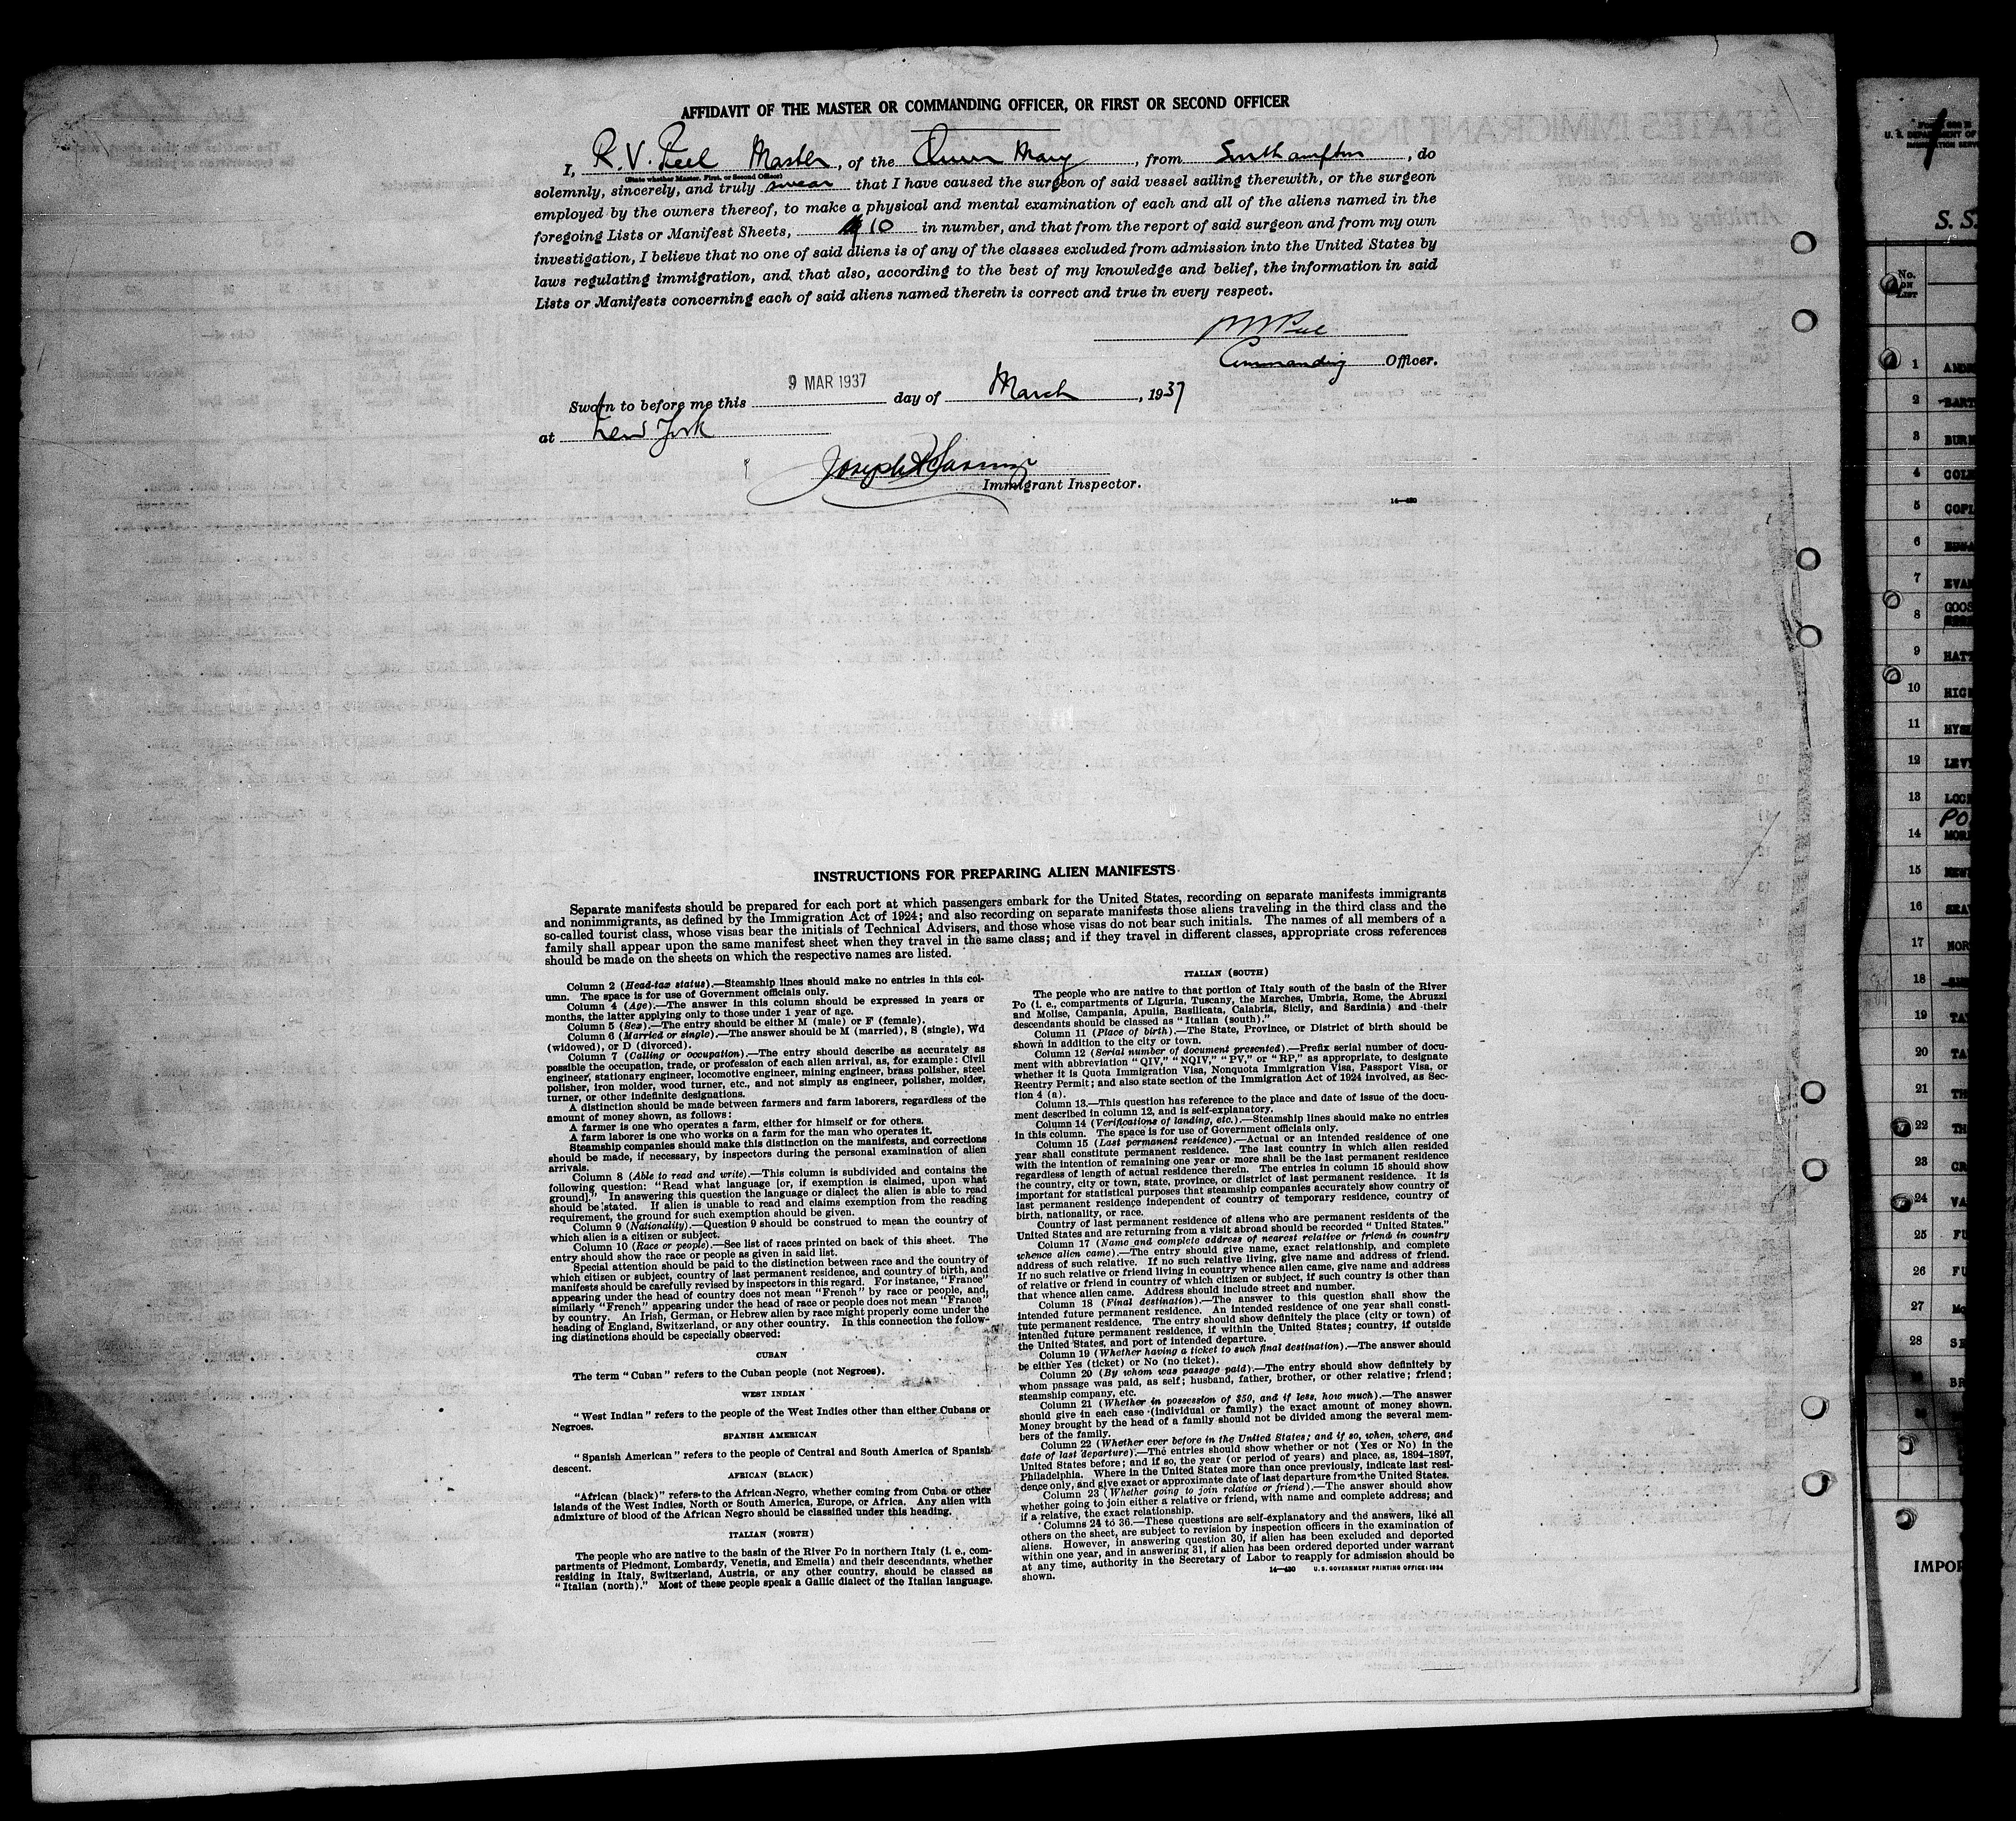 AFFIDAVIT OF THE MASTER OR COMMANDING OFFICER, OR FIRST OR SECOND OFFICER
I, R. V. Peel Master, of the Queen Mary, from Southampton, do
(State whether Master, First, or Second Officer)
solemnly, sincerely, and truly swear that I have caused the surgeon of said vessel sailing therewith, or the surgeon
employed by the owners thereof, to make a physical and mental examination of each and all of the aliens named in the
foregoing Lists or Manifest Sheets, 10 in number, and that from the report of said surgeon and from my own
investigation, I believe that no one of said aliens is of any of the classes excluded from admission into the United States by
laws regulating immigration, and that also, according to the best of my knowledge and belief, the information in said
Lists or Manifests concerning each of said aliens named therein is correct and true in every respect.
Commanding Officer.
Sworn to before me this 9 MAR 1937 day of March, 1937
at New York
Joseph
Immigrant Inspector.
14—430
INSTRUCTIONS FOR PREPARING ALIEN MANIFESTS
Separate manifests should be prepared for each port at which passengers embark for the United States, recording on separate manifests immigrants
and nonimmigrants, as defined by the Immigration Act of 1924; and also recording on separate manifests those aliens traveling in the third class and the
so-called tourist class, whose visas bear the initials of Technical Advisers, and those whose visas do not bear such initials. The names of all members of a
family shall appear upon the same manifest sheet when they travel in the same class; and if they travel in different classes, appropriate cross references
should be made on the sheets on which the respective names are listed.
Column 2 (Head-tax status).—Steamship lines should make no entries in this col-
umn. The space is for use of Government officials only.
Column 4 (Age).—The answer in this column should be expressed in years or
months, the latter applying only to those under 1 year of age.
Column 5 (Sex).—The entry should be either M (male) or F (female).
Column 6 (Married or single).—The answer should be M (married), S (single), Wd
(widowed), or D (divorced).
Column 7 (Calling or occupation).—The entry should describe as accurately as
possible the occupation, trade, or profession of each alien arrival, as, for example: Civil
engineer, stationary engineer, locomotive engineer, mining engineer, brass polisher, steel
polisher, iron molder, wood turner, etc., and not simply as engineer, polisher, molder,
turner, or other indefinite designations.
A distinction should be made between farmers and farm laborers, regardless of the
amount of money shown, as follows:
A farmer is one who operates a farm, either for himself or for others.
A farm laborer is one who works on a farm for the man who operates it.
Steamship companies should make this distinction on the manifests, and corrections
should be made, if necessary, by inspectors during the personal examination of alien
arrivals.
Column 8 (Able to read and write).—This column is subdivided and contains the
following question: "Read what language [or, if exemption is claimed, upon what
ground]." In answering this question the language or dialect the alien is able to read
should be stated. If alien is unable to read and claims exemption from the reading
requirement, the ground for such exemption should be given.
Column 9 (Nationality).—Question 9 should be construed to mean the country of
which alien is a citizen or subject.
Column 10 (Race or people).—See list of races printed on back of this sheet. The
entry should show the race or people as given in said list.
Special attention should be paid to the distinction between race and the country of
which citizen or subject, country of last permanent residence, and country of birth, and
manifests should be carefully revised by inspectors in this regard. For instance, "France"
appearing under the head of country does not mean "French" by race or people, and,
similarly "French" appearing under the head of race or people does not mean "France"
by country. An Irish, German, or Hebrew alien by race might properly come under the
heading of England, Switzerland, or any other country. In this connection the follow-
ing distinctions should be especially observed:
CUBAN
The term "Cuban" refers to the Cuban people (not Negroes).
WEST INDIAN
"West Indian" refers to the people of the West Indies other than either Cubans or
Negroes.
SPANISH AMERICAN
"Spanish American" refers to the people of Central and South America of Spanish
descent.
AFRICAN (BLACK)
"African (black)" refers to the African Negro, whether coming from Cuba or other
islands of the West Indies, North or South America, Europe, or Africa. Any alien with
admixture of blood of the African Negro should be classified under this heading.
ITALIAN (NORTH)
The people who are native to the basin of the River Po in northern Italy (i. e., com-
partments of Piedmont, Lombardy, Venetia, and Emelia) and their descendants, whether
residing in Italy, Switzerland, Austria, or any other country, should be classed as
"Italian (north)." Most of these people speak a Gallic dialect of the Italian language.
ITALIAN (SOUTH)
The people who are native to that portion of Italy south of the basin of the River
Po (i. e., compartments of Liguria, Tuscany, the Marches, Umbria, Rome, the Abruzzi
and Molise, Campania, Apulia, Basilicata, Calabria, Sicily, and Sardinia) and their
descendants should be classed as "Italian (south)."
Column 11 (Place of birth).—The State, Province, or District of birth should be
shown in addition to the city or town.
Column 12 (Serial number of document presented).—Prefix serial number of docu-
ment with abbreviation "QIV," "NQIV," "PV," or "RP," as appropriate, to designate
whether it is Quota Immigration Visa, Nonquota Immigration Visa, Passport Visa, or
Reentry Permit; and also state section of the Immigration Act of 1924 involved, as Sec-
tion 4 (a).
Column 13.—This question has reference to the place and date of issue of the docu-
ment described in column 12, and is self-explanatory.
Column 14 (Verifications of landing, etc.).—Steamship lines should make no entries
in this column. The space is for use of Government officials only.
Column 15 (Last permanent residence).—Actual or an intended residence of one
year shall constitute permanent residence. The last country in which alien resided
with the intention of remaining one year or more shall be the last permanent residence
regardless of length of actual residence therein. The entries in column 15 should show
the country, city or town, state, province, or district of last permanent residence. It is
important for statistical purposes that steamship companies accurately show country of
last permanent residence independent of country of temporary residence, country of
birth, nationality, or race.
Country of last permanent residence of aliens who are permanent residents of the
United States and are returning from a visit abroad should be recorded "United States."
Column 17 (Name and complete address of nearest relative or friend in country
whence alien came).—The entry should give name, exact relationship, and complete
address of such relative. If no such relative living, give name and address of friend.
If no such relative or friend living in country whence alien came, give name and address
of relative or friend in country of which citizen or subject, if such country is other than
that whence alien came. Address should include street and number.
Column 18 (Final destination).—The answer to this question shall show the
intended future permanent residence. An intended residence of one year shall consti-
tute permanent residence. The entry should show definitely the place (city or town) of
intended future permanent residence, if within the United States; country, if outside
the United States, and port of intended departure.
Column 19 (Whether having a ticket to such final destination).—The answer should
be either Yes (ticket) or No (no ticket).
Column 20 (By whom was passage paid).—The entry should show definitely by
whom passage was paid, as self; husband, father, brother, or other relative; friend;
steamship company, etc.
Column 21 (Whether in possession of $50, and if less, how much).—The answer
should give in each case (individual or family) the exact amount of money shown.
Money brought by the head of a family should not be divided among the several mem-
bers of the family.
Column 22 (Whether ever before in the United States; and if so, when, where, and
date of last departure).—The entries should show whether or not (Yes or No) in the
United States before; and if so, the year (or period of years) and place, as, 1894–1897,
Philadelphia. Where in the United States more than once previously, indicate last resi-
dence only, and give exact or approximate date of last departure from the United States.
Column 23 (Whether going to join relative or friend).—The answer should show
whether going to join either a relative or friend, with name and complete address; and
if a relative, the exact relationship.
Columns 24 to 36.—These questions are self-explanatory and the answers, like all
others on the sheet, are subject to revision by inspection officers in the examination of
aliens. However, in answering question 30, if alien has been excluded and deported
within one year, and in answering 31, if alien has been ordered deported under warrant
at any time, authority in the Secretary of Labor to reapply for admission should be
shown.
14—430 U. S. GOVERNMENT PRINTING OFFICE: 1934
S. S.
No.
ON
LIST
1
2 BART
3 BURN
4
5 COPL
6
7 EVAN
8 GOOS
9 HATT
10 HIC
11
12 LEV
13 LOC
PO
14
15
16
17 NOR
18
19 TA
20 TA
21 TH
22 TH
23 CR
24 VA
25 FU
26 FU
27 Mc
28 SE
BR
IMPOR